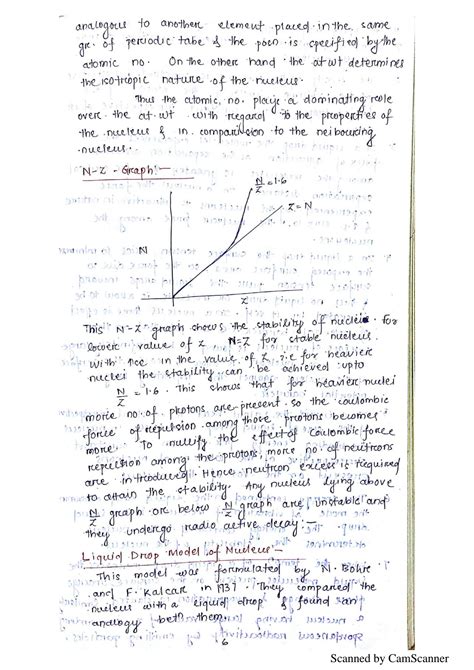 analogous to another element placed in the same
gr. of periodic table & the posn is specified by the
atomic no. On the other hand the at wt determines
the isotropic nature of the nucleus.
Thus the atomic no. plays a dominating role
over the at. wt with regard to the properties of
the nucleus & in comparision to the neibouring
nucleus.
N-Z - Graph :-
N/Z = 1.6
Z = N
N
Z
This N-Z graph shows the stability of nuclei. For
lower value of Z N=Z for stable nucleus.
With rise in the value of Z i.e for heavier
nuclei the stability can be achieved upto
N/Z = 1.6. This shows that for heavier nuclei
more no. of protons are present so the coulombic
force of repulsion among those protons becomes
more. To nullify the effect of coulombic force
repulsion among the protons, more no. of neutrons
are introduced. Hence neutron excess is required
to attain the stability. Any nucleus lying above
N/Z graph or below N/Z graph are unstable and
they undergo radio active decay :-
Liquid Drop Model of Nucleus -
This model was formulated by N. Bohr
and F. Kalcar in 1937. They compared the
nucleus with a liquid drop & found an
analogy betn them.
6
Scanned by CamScanner